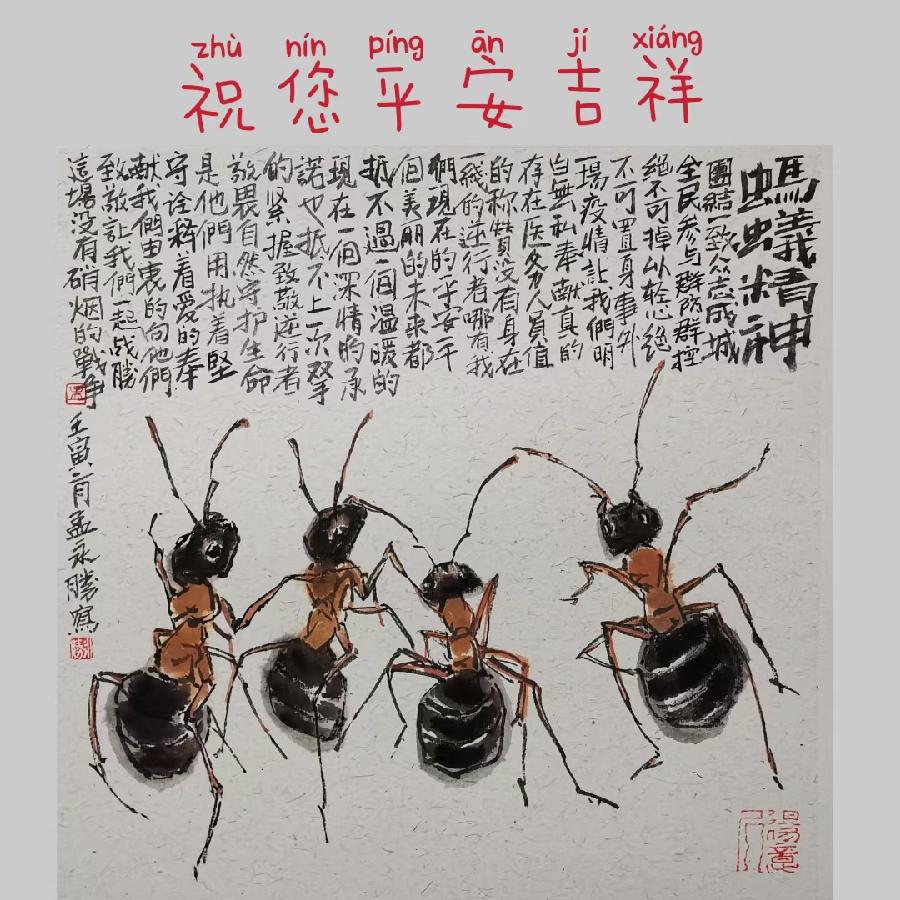 zhù nín píng ān jí xiáng
祝您平安吉祥
螞蟻精神
團結一致众志成城
全民参与群防群控
絕不可掉以轻心絕
不可置身事外
場疫情让我們明
白無私奉献真的
存在医务人員值
的称赞没有身在
一綫的逆行者哪有我
們現在的平安一千
個美丽的未来都
抵不過一個温暖的
現在一個深情的承
諾也抵不上一次双手
的紧握致敬逆行者
敬畏自然守护生命
是他們用执着堅
守诠释着爱的奉
献我們由衷的向他們
致敬讓我們一起战勝
這場没有硝烟的戰争
壬寅二月孟永勝寫